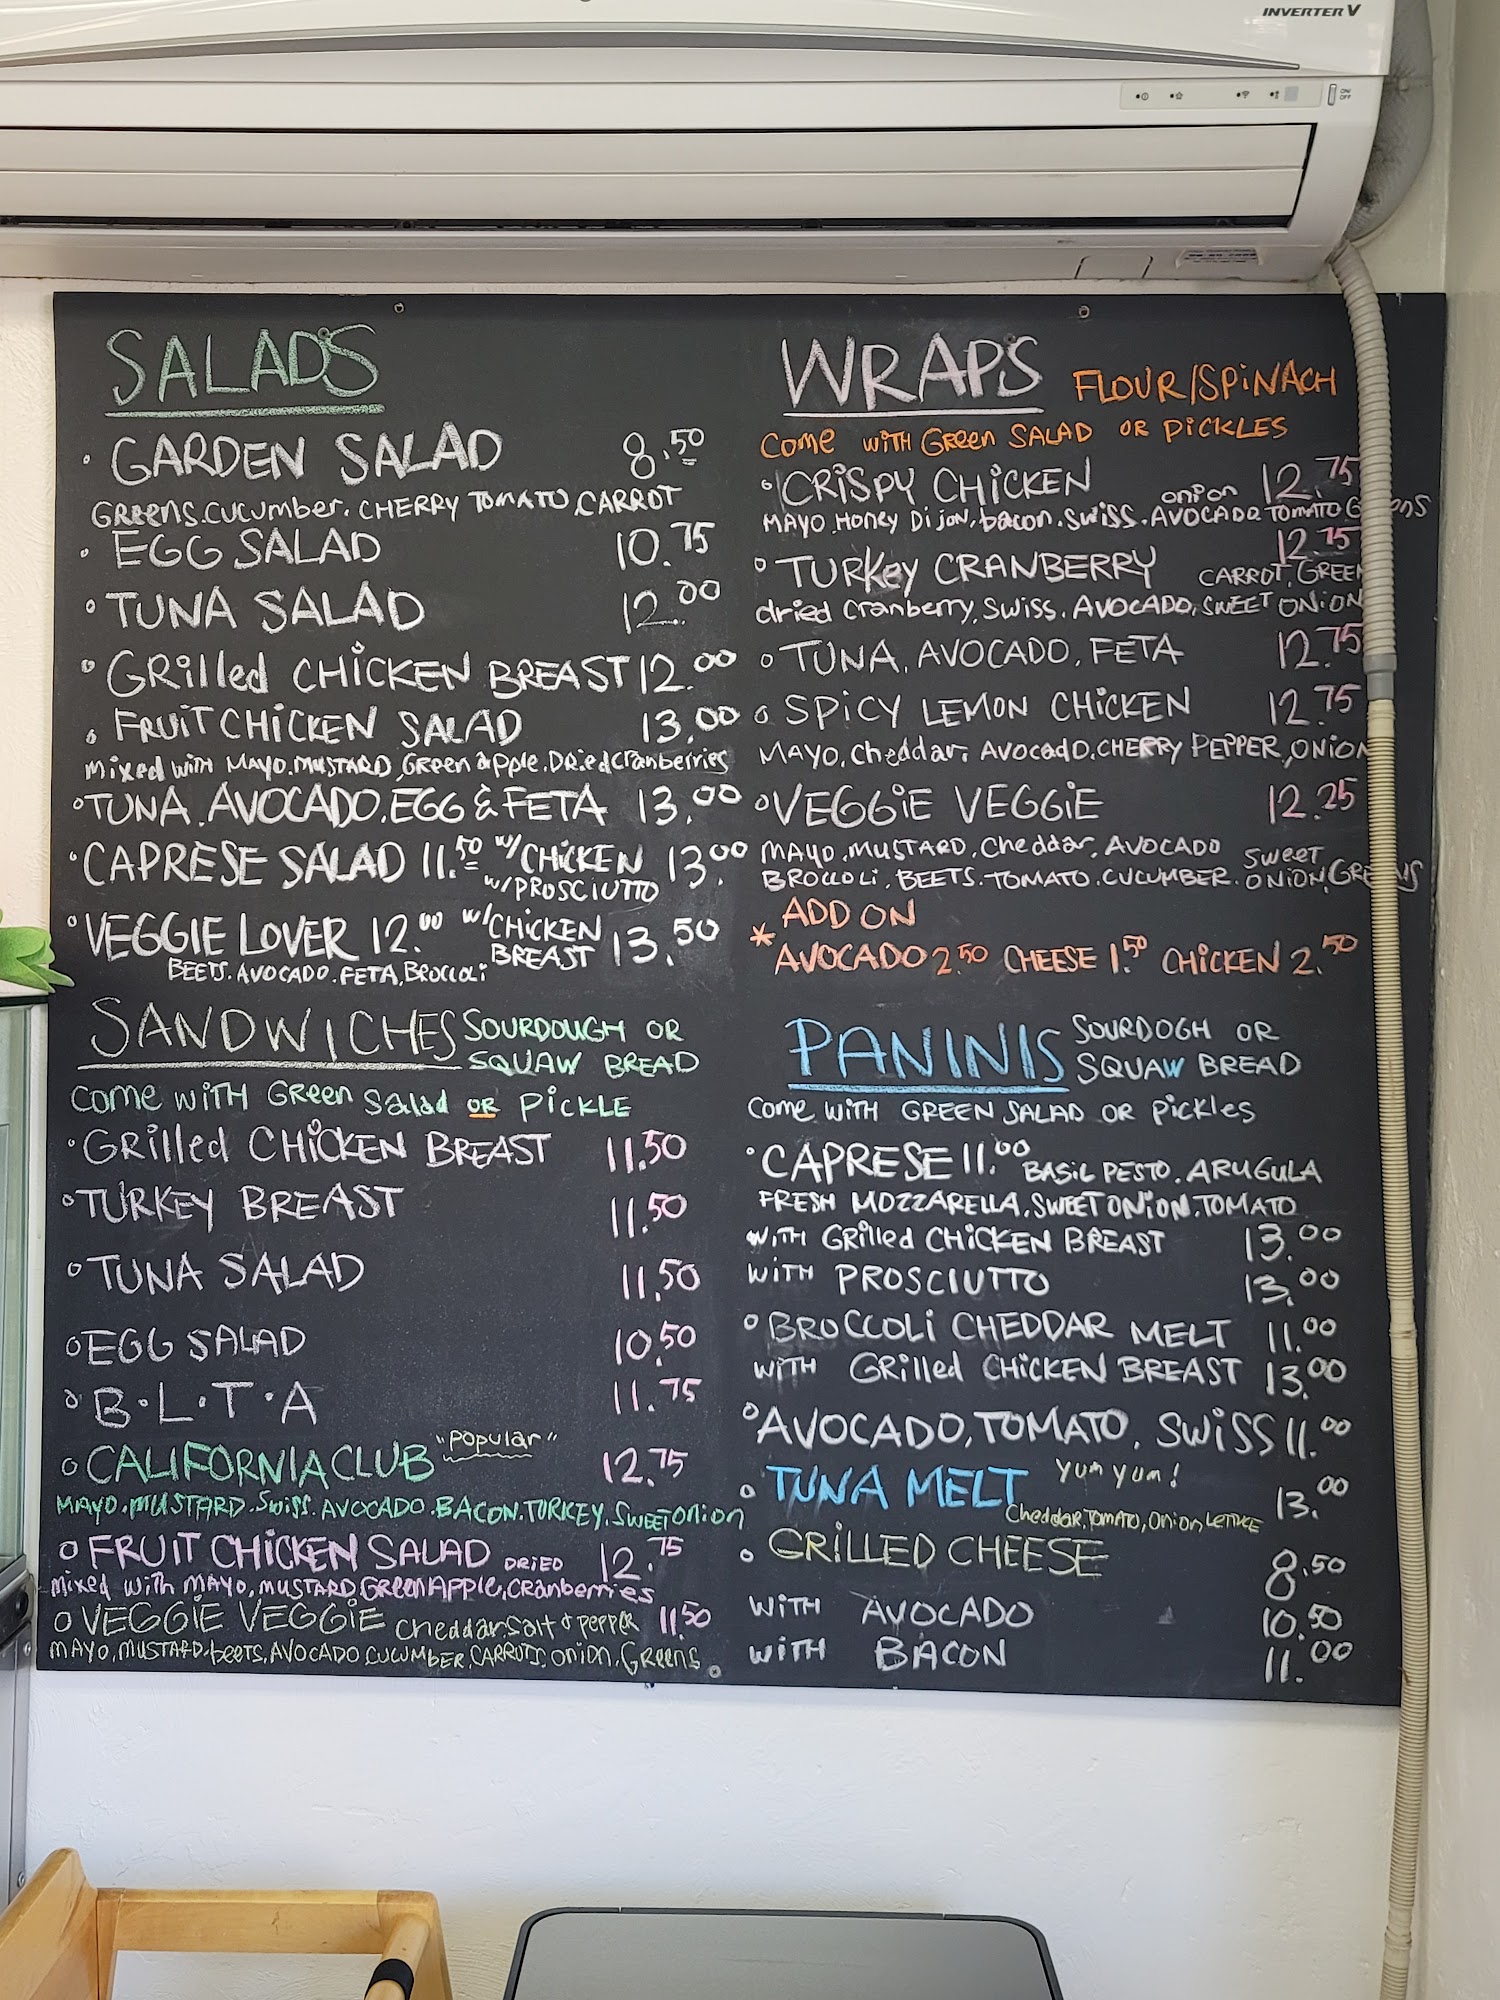 INVERTER V
ON
OFF
SALADS
• GARDEN SALAD 8.50
GREENS. CUCUMBER. CHERRY TOMATO, CARROT
• EGG SALAD 10.75
• TUNA SALAD 12.00
• GRilled CHiCKEN BREAST 12.00
• FRUiT CHiCKEN SALAD 13.00
Mixed with MAYO. MUSTARD, Green Apple. DRied Cranberries
• TUNA. AVOCADO. EGG & FETA 13.00
• CAPRESE SALAD 11.50 w/ CHiCKEN 13.00
w/ PROSCIUTTO
• VEGGIE LOVER 12.00 w/ CHiCKEN BREAST 13.50
BEETS. AVOCADO. FETA, BROCCOLi
SANDWICHES SOURDOUGH OR
SQUAW BREAD
Come with Green Salad OR PiCKLE
• GRilled CHiCKEN BREAST 11.50
• TURKEY BREAST 11.50
• TUNA SALAD 11.50
• EGG SALAD 10.50
• B·L·T·A 11.75
• CALIFORNIA CLUB "Popular" 12.75
MAYO. MUSTARD. Swiss. AVOCADO. BACON. TURKEY. SWEET ONiON
• FRUIT CHiCKEN SALAD DRIED 12.75
Mixed with MAYO, MUSTARD, Green APPle, Cranberries
• VEGGIE VEGGIE Cheddar. Salt & Pepper 11.50
MAYO, MUSTARD. beets, AVOCADO, CUCUMBER, CARROTS. ONiON, Greens
WRAPS FLOUR/SPiNACH
Come with Green SALAD OR PiCKLES
• CRiSPY CHiCKEN 12.75
onion
MAYO. Honey Dijon, bacon. Swiss. AVOCADO. TOMATO
• TURKey CRANBERRY 12.75
CARROT, GREEN
dried Cranberry, Swiss. AVOCADO, SWEET ONiON
• TUNA, AVOCADO, FETA 12.75
• SPiCY LEMON CHiCKEN 12.75
MAYO, Cheddar, AvocadO. CHERRY PEPPER, ONiON
• VEGGiE VEGGiE 12.25
MAYO, MUSTARD, Cheddar, AVOCADO
BROCCOLi. BEETS. TOMATO. CUCUMBER. Sweet ONiON,
* ADD ON
AVOCADO 2.50 CHEESE 1.50 CHiCKEN 2.50
PANINIS SOURDOGH OR
SQUAW BREAD
Come with GREEN SALAD OR Pickles
• CAPRESE 11.00 BASiL PESTO. ARUGULA
FRESH MOZZARELLA, SWEET ONiON, TOMATO
WiTH GRilled CHiCKEN BREAST 13.00
WiTH PROSCIUTTO 13.00
• BROCCOLi CHEDDAR MELT 11.00
WiTH GRilled CHiCKEN BREAST 13.00
• AVOCADO, TOMATO, SWiSS 11.00
• TUNA MELT Yum Yum! 13.00
Cheddar, TOMATO, ONiON LETTUCE
• GRiLLED CHEESE 8.50
WiTH AVOCADO 10.50
WiTH BACON 11.00